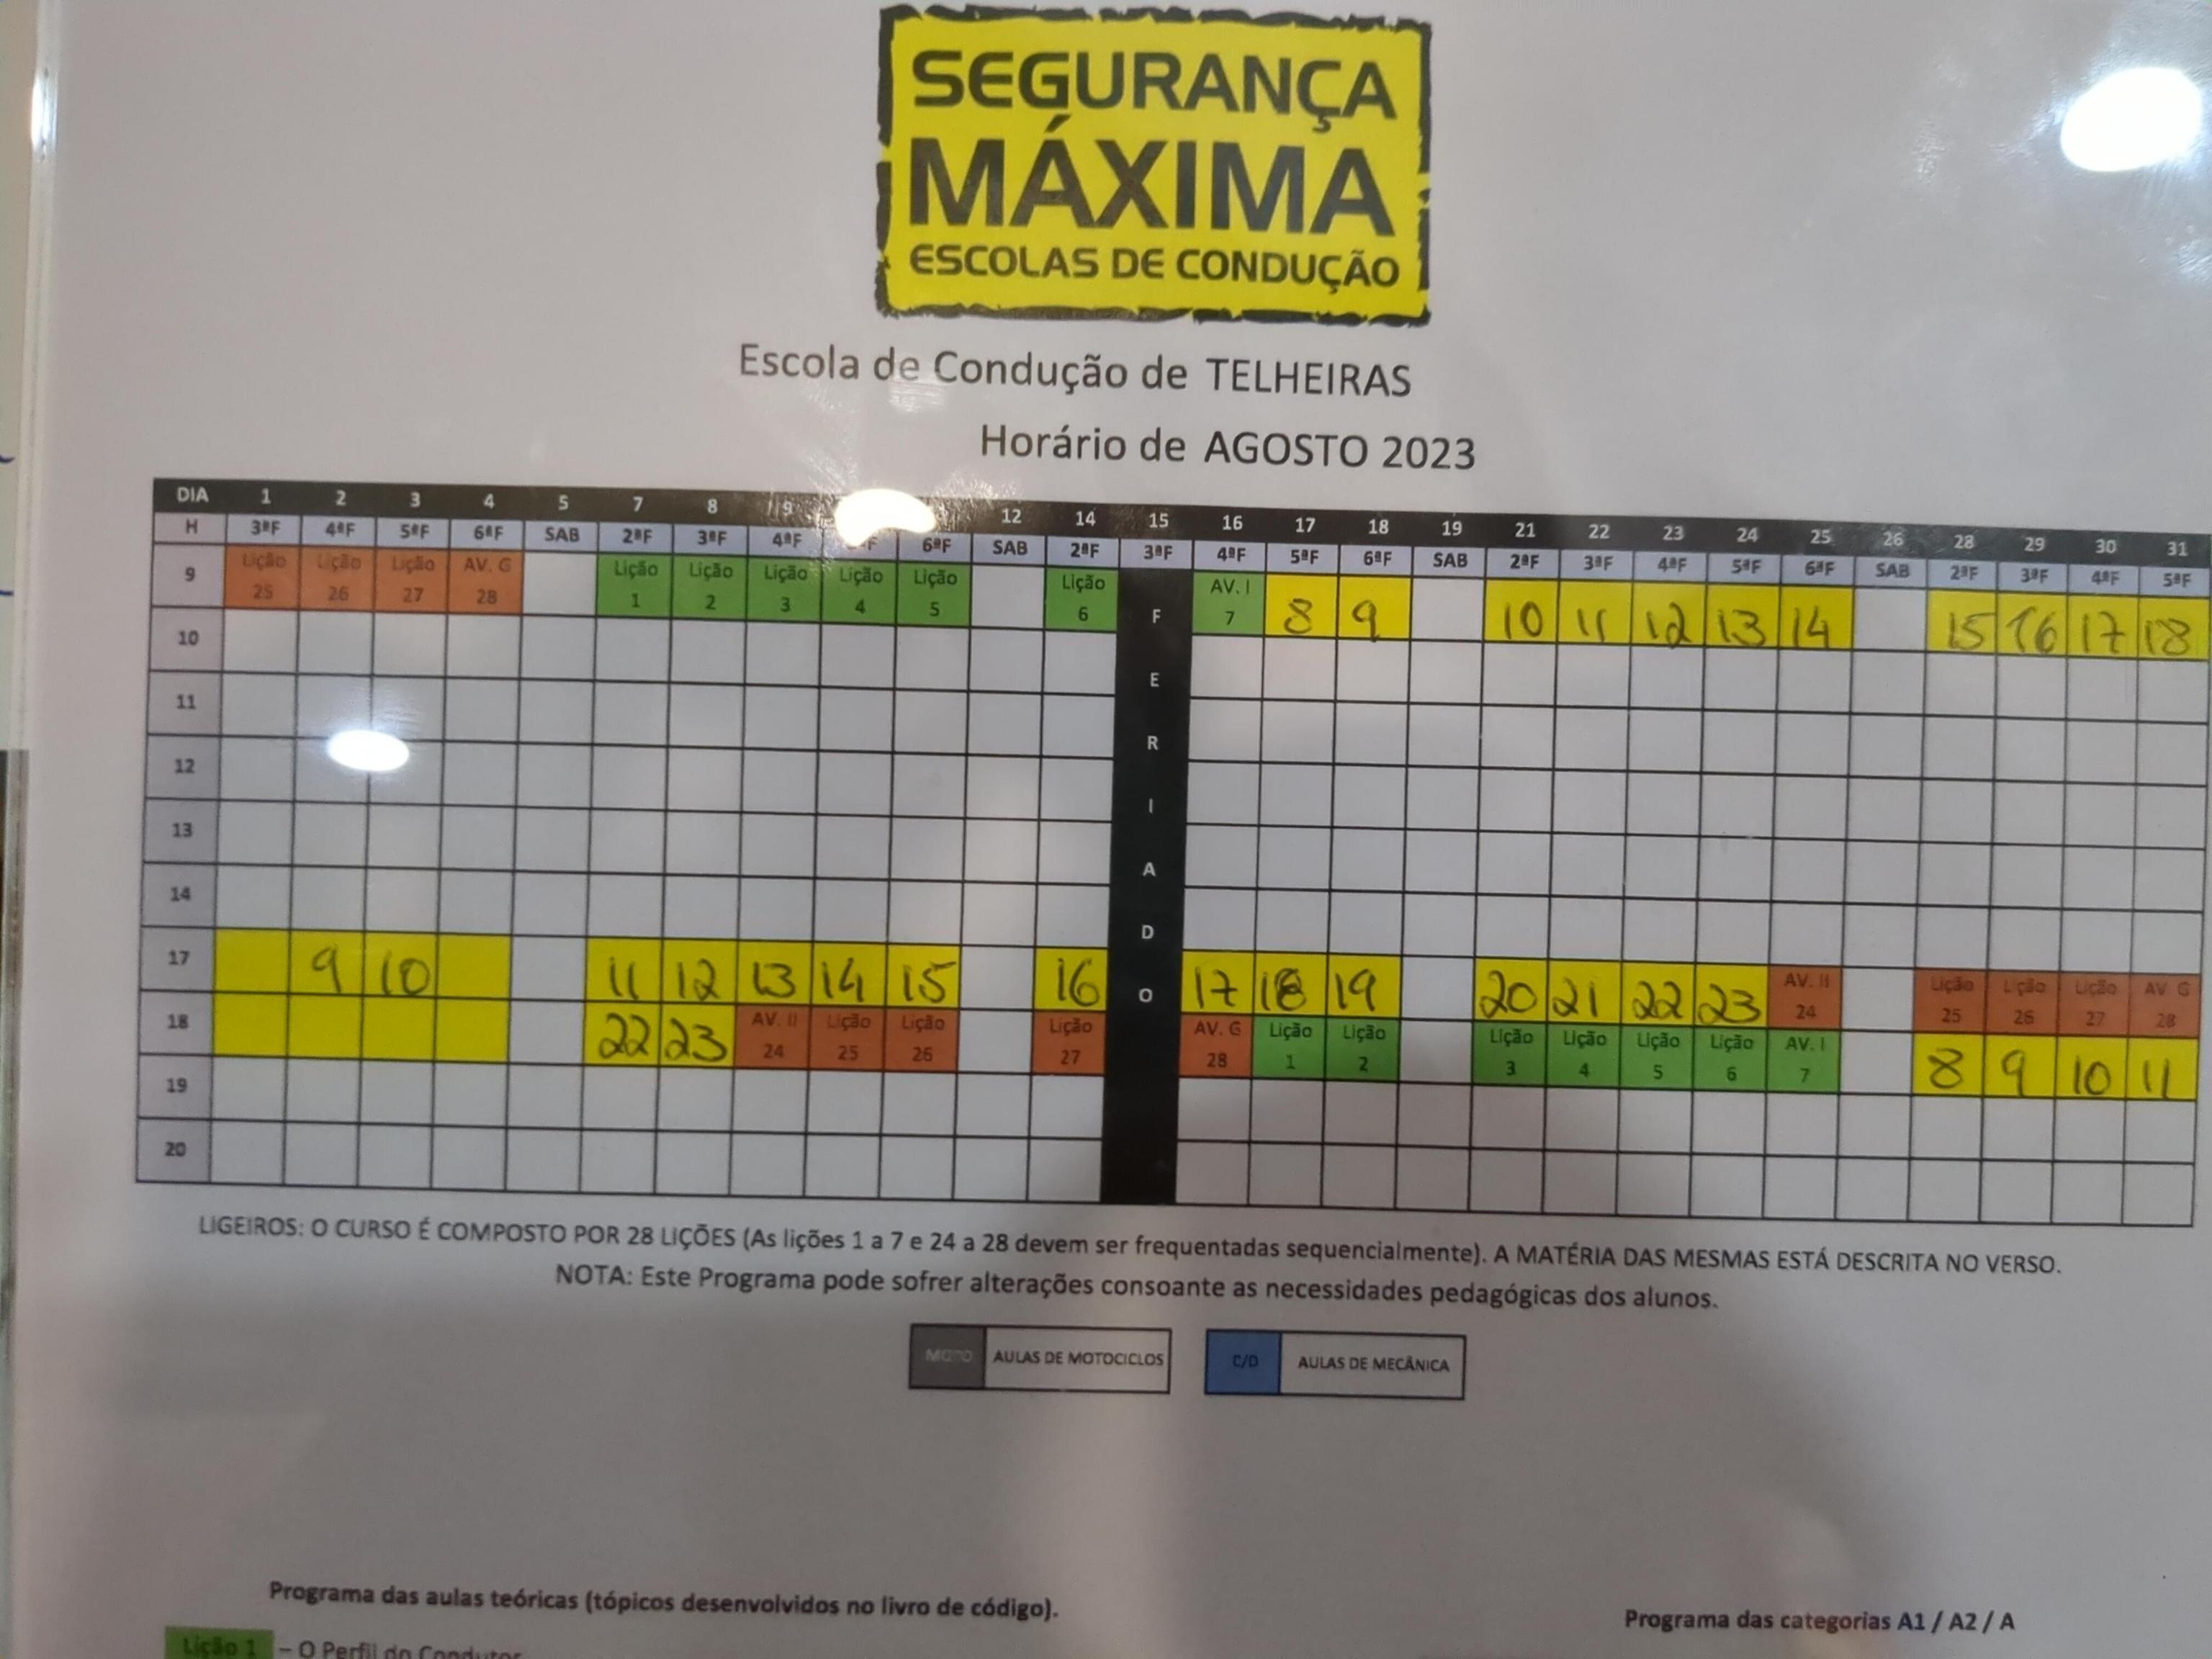 SEGURANÇA
MÁXIMA
ESCOLAS DE CONDUÇÃO
Escola de Condução de TELHEIRAS
Horário de AGOSTO 2023
DIA 1 2 3 4 5 7 8 9 12 14 15 16 17 18 19 21 22 23 24 25 26 28 29 30 31
H 3ªF 4ªF 5ªF 6ªF SAB 2ªF 3ªF 4ªF ªF 6ªF SAB 2ªF 3ªF 4ªF 5ªF 6ªF SAB 2ªF 3ªF 4ªF 5ªF 6ªF SAB 2ªF 3ªF 4ªF 5ªF
9 Lição 25 Lição 26 Lição 27 AV. G 28 Lição 1 Lição 2 Lição 3 Lição 4 Lição 5 Lição 6 AV. I 7 8 9 10 11 12 13 14 15 16 17 18
10
11
12
13
14
FERIADO
17 9 10 11 12 13 14 15 16 17 18 19 20 21 22 23 AV. II 24 Lição 25 Lição 26 Lição 27 AV G 28
18 22 23 AV. II 24 Lição 25 Lição 26 Lição 27 AV. G 28 Lição 1 Lição 2 Lição 3 Lição 4 Lição 5 Lição 6 AV. I 7 8 9 10 11
19
20
LIGEIROS: O CURSO É COMPOSTO POR 28 LIÇÕES (As lições 1 a 7 e 24 a 28 devem ser frequentadas sequencialmente). A MATÉRIA DAS MESMAS ESTÁ DESCRITA NO VERSO.
NOTA: Este Programa pode sofrer alterações consoante as necessidades pedagógicas dos alunos.
MOTO AULAS DE MOTOCICLOS C/D AULAS DE MECÂNICA
Programa das aulas teóricas (tópicos desenvolvidos no livro de código).
Programa das categorias A1 / A2 / A
Lição 1 – O Perfil do Condutor